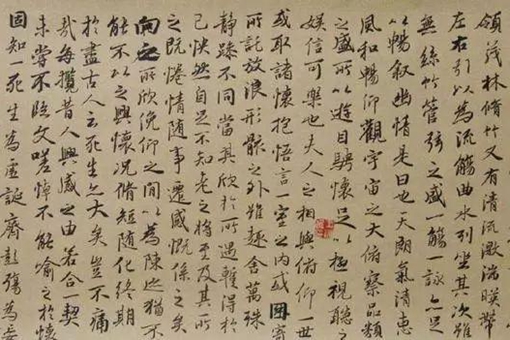 領茂林脩竹又有清流激湍暎帶
左右引以為流觴曲水列坐其次雖
無絲竹管弦之盛一觴一詠亦足
以暢叙幽情是日也天朗氣清惠
風和暢仰觀宇宙之大俯察品類
之盛所以遊目騁懷足以極視聽之
娛信可樂也夫人之相與俯仰一世
或取諸懷抱悟言一室之內或因寄
所託放浪形骸之外雖趣舍萬殊
靜躁不同當其欣於所遇暫得於
己快然自足不知老之將至及其所
之既惓情隨事遷感慨係之矣
向之所欣俛仰之間以為陳迹猶不
能不以之興懷況脩短隨化終期
於盡古人云死生亦大矣豈不痛
哉每攬昔人興感之由若合一契
未嘗不臨文嗟悼不能喻之於懷
固知一死生為虛誕齊彭殤為妄